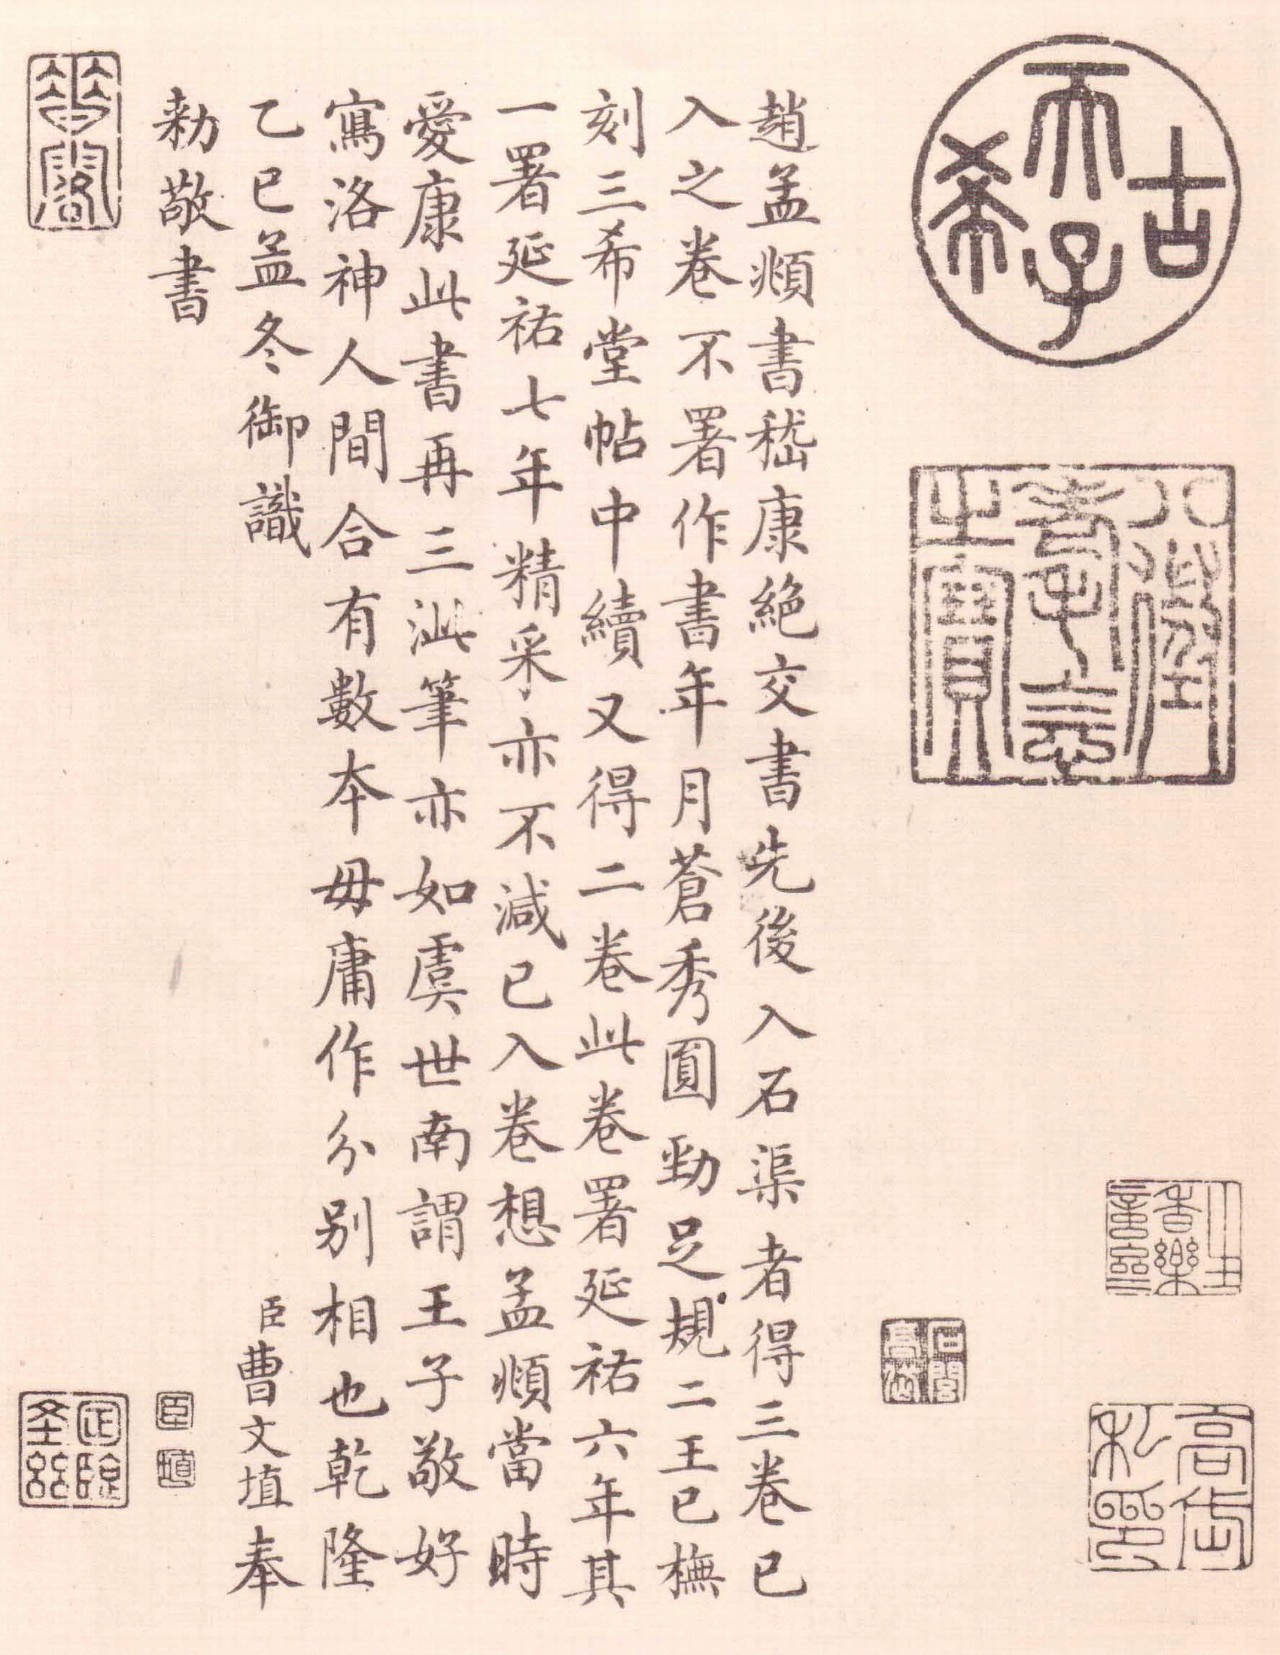 古希天子
八徵耄念之寶
趙孟頫書嵇康絶交書先後入石渠者得三卷已
入之卷不署作書年月蒼秀圓勁足規二王已橅
刻三希堂帖中續又得二卷此卷署延祐六年其
一署延祐七年精采亦不減已入卷想孟頫當時
愛康此書再三泚筆亦如虞世南謂王子敬好
寫洛神人間合有數本毋庸作分別相也乾隆
乙巳孟冬御識 臣曹文埴奉
勅敬書
臣
埴